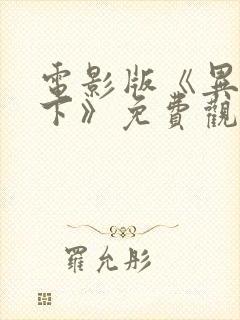 電影版《異
下》免費觀
羅允彤